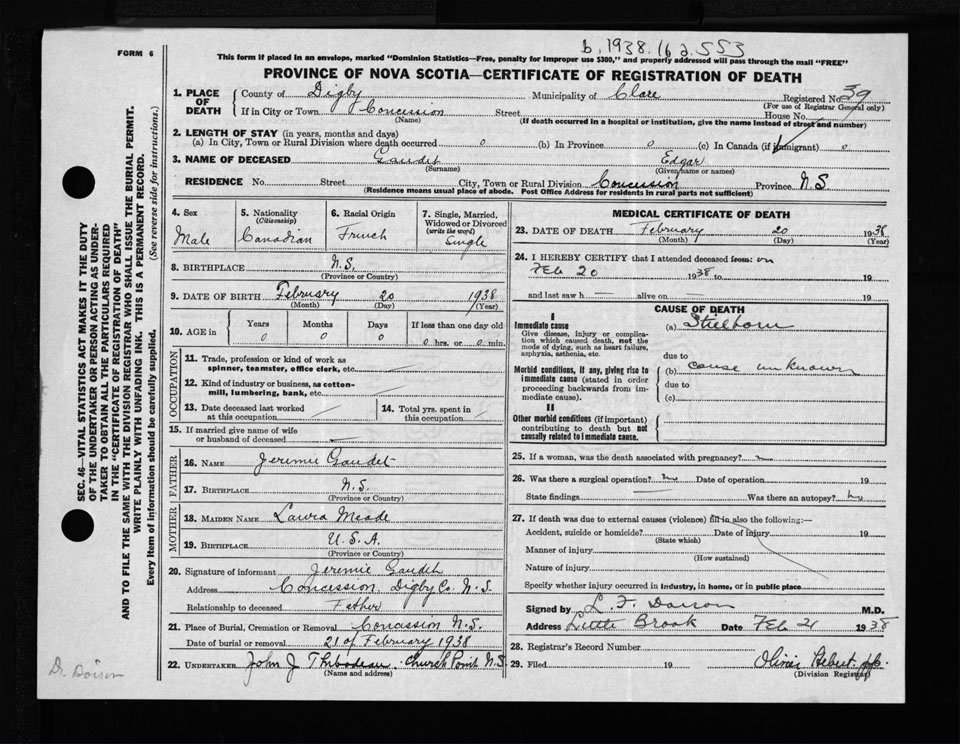 b. 1938. 16 2.553
FORM 6
This form if placed in an envelope, marked "Dominion Statistics—Free, penalty for improper use $300," and properly addressed will pass through the mail "FREE"
PROVINCE OF NOVA SCOTIA—CERTIFICATE OF REGISTRATION OF DEATH
1. PLACE OF DEATH
County of Digby Municipality of Clare Registered No. 39
(For use of Registrar General only)
If in City or Town Concession Street House No.
(Name) (If death occurred in a hospital or institution, give the name instead of street and number)
2. LENGTH OF STAY (in years, months and days)
(a) In City, Town or Rural Division where death occurred 0 (b) In Province 0 (c) In Canada (if immigrant) 0
3. NAME OF DECEASED Gaudet Edgar
(Surname) (Given name or names)
RESIDENCE No. Street City, Town or Rural Division Concession Province N.S.
(Residence means usual place of abode. Post Office Address for residents in rural parts not sufficient)
4. Sex Male
5. Nationality (Citizenship) Canadian
6. Racial Origin French
7. Single, Married, Widowed or Divorced (write the word) Single
8. BIRTHPLACE N.S.
(Province or Country)
9. DATE OF BIRTH February 20 1938
(Month) (Day) (Year)
10. AGE in Years Months Days If less than one day old
0 0 0 0 hrs. or 0 min.
OCCUPATION
11. Trade, profession or kind of work as spinner, teamster, office clerk, etc. —
12. Kind of industry or business, as cotton-mill, lumbering, bank, etc. —
13. Date deceased last worked at this occupation —
14. Total yrs. spent in this occupation —
15. If married give name of wife or husband of deceased —
FATHER
16. NAME Jeremie Gaudet
17. BIRTHPLACE N.S.
(Province or Country)
MOTHER
18. MAIDEN NAME Laura Meade
19. BIRTHPLACE U.S.A.
(Province or Country)
20. Signature of informant Jeremie Gaudet
Address Concession, Digby Co. N.S.
Relationship to deceased Father
21. Place of Burial, Cremation or Removal Concession N.S.
Date of burial or removal 21 of February 1938
22. UNDERTAKER John J Thibodeau. Church Point N.S.
(Name and address)
MEDICAL CERTIFICATE OF DEATH
23. DATE OF DEATH February 20 1938
(Month) (Day) (Year)
24. I HEREBY CERTIFY that I attended deceased from: on
Feb 20 1938 to 19
and last saw h — alive on — 19
CAUSE OF DEATH
I
Immediate cause
Give disease, injury or complication which caused death, not the mode of dying, such as heart failure, asphyxia, asthenia, etc.
(a) Stillborn
due to
Morbid conditions, if any, giving rise to immediate cause (stated in order proceeding backwards from immediate cause).
(b) cause unknown
due to
(c)
II
Other morbid conditions (if important) contributing to death but not causally related to immediate cause.
25. If a woman, was the death associated with pregnancy?
26. Was there a surgical operation? No Date of operation 19
State findings — Was there an autopsy? No
27. If death was due to external causes (violence) fill in also the following:—
Accident, suicide or homicide? Date of injury 19
(State which)
Manner of injury
(How sustained)
Nature of injury
Specify whether injury occurred in industry, in home, or in public place
Signed by L. F. Doiron M.D.
Address Little Brook Date Feb 21 1938
28. Registrar's Record Number
29. Filed 19
(Division Registrar)
SEC. 46—VITAL STATISTICS ACT MAKES IT THE DUTY
OF THE UNDERTAKER OR PERSON ACTING AS UNDER-
TAKER TO OBTAIN ALL THE PARTICULARS REQUIRED
IN THE "CERTIFICATE OF REGISTRATION OF DEATH"
AND TO FILE THE SAME WITH THE DIVISION REGISTRAR WHO SHALL ISSUE THE BURIAL PERMIT.
WRITE PLAINLY WITH UNFADING INK. THIS IS A PERMANENT RECORD.
Every item of information should be carefully supplied. (See reverse side for instructions.)
Dr. Doiron